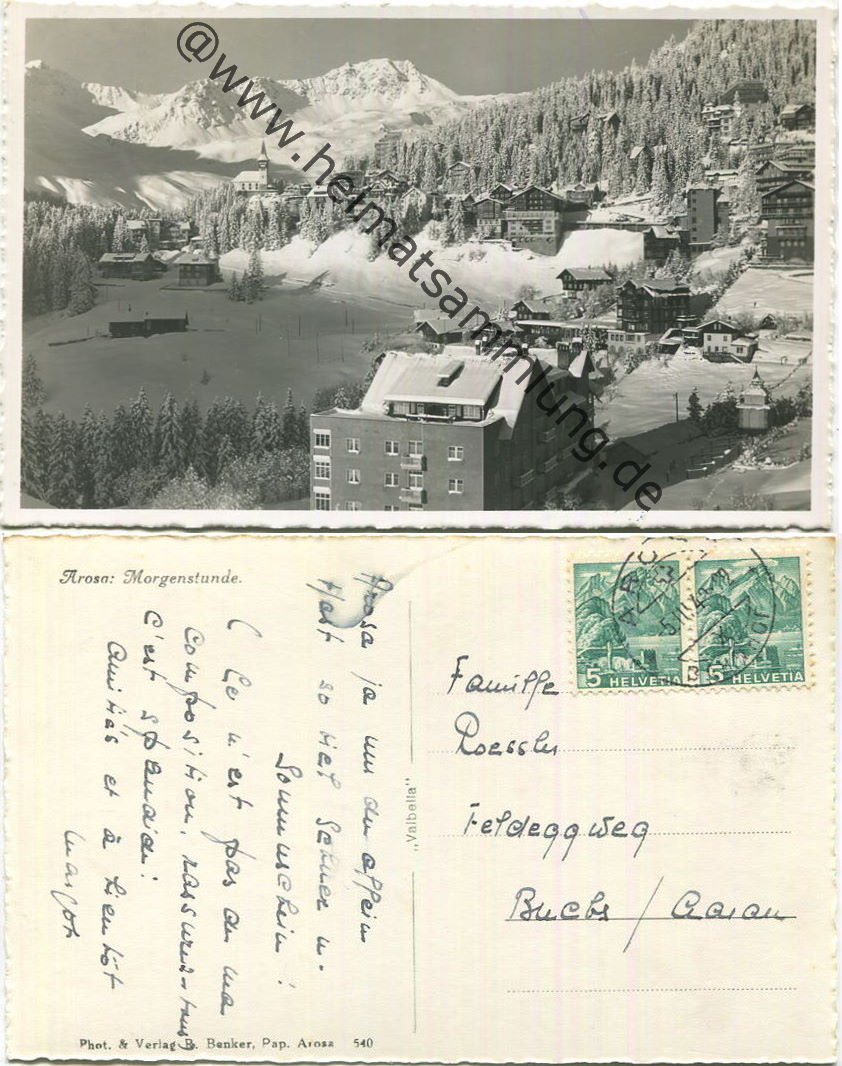 @www.heimatsammlung.de
Arosa: Morgenstunde.
Arosa ja nur du allein
Hast so viel Schnee u.
Sonnenschein!
( Ce n'est pas de ma
composition, rassurez-vous
C'est splendide!
Amitiés et à bientôt
Margot
"Valbella"
Phot. & Verlag B. Benker, Pap. Arosa 540
5 HELVETIA
5 HELVETIA
Familie
Roessler
Feldeggweg
Buchs / Aarau